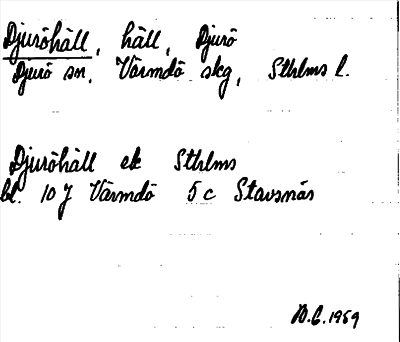 Djuröhäll, häll, Djurö
Djurö sn, Värmdö skg, Sthlms l.
Djuröhäll ek Sthlms
bl. 10 J Värmdö 5 c Stavsnäs
1959